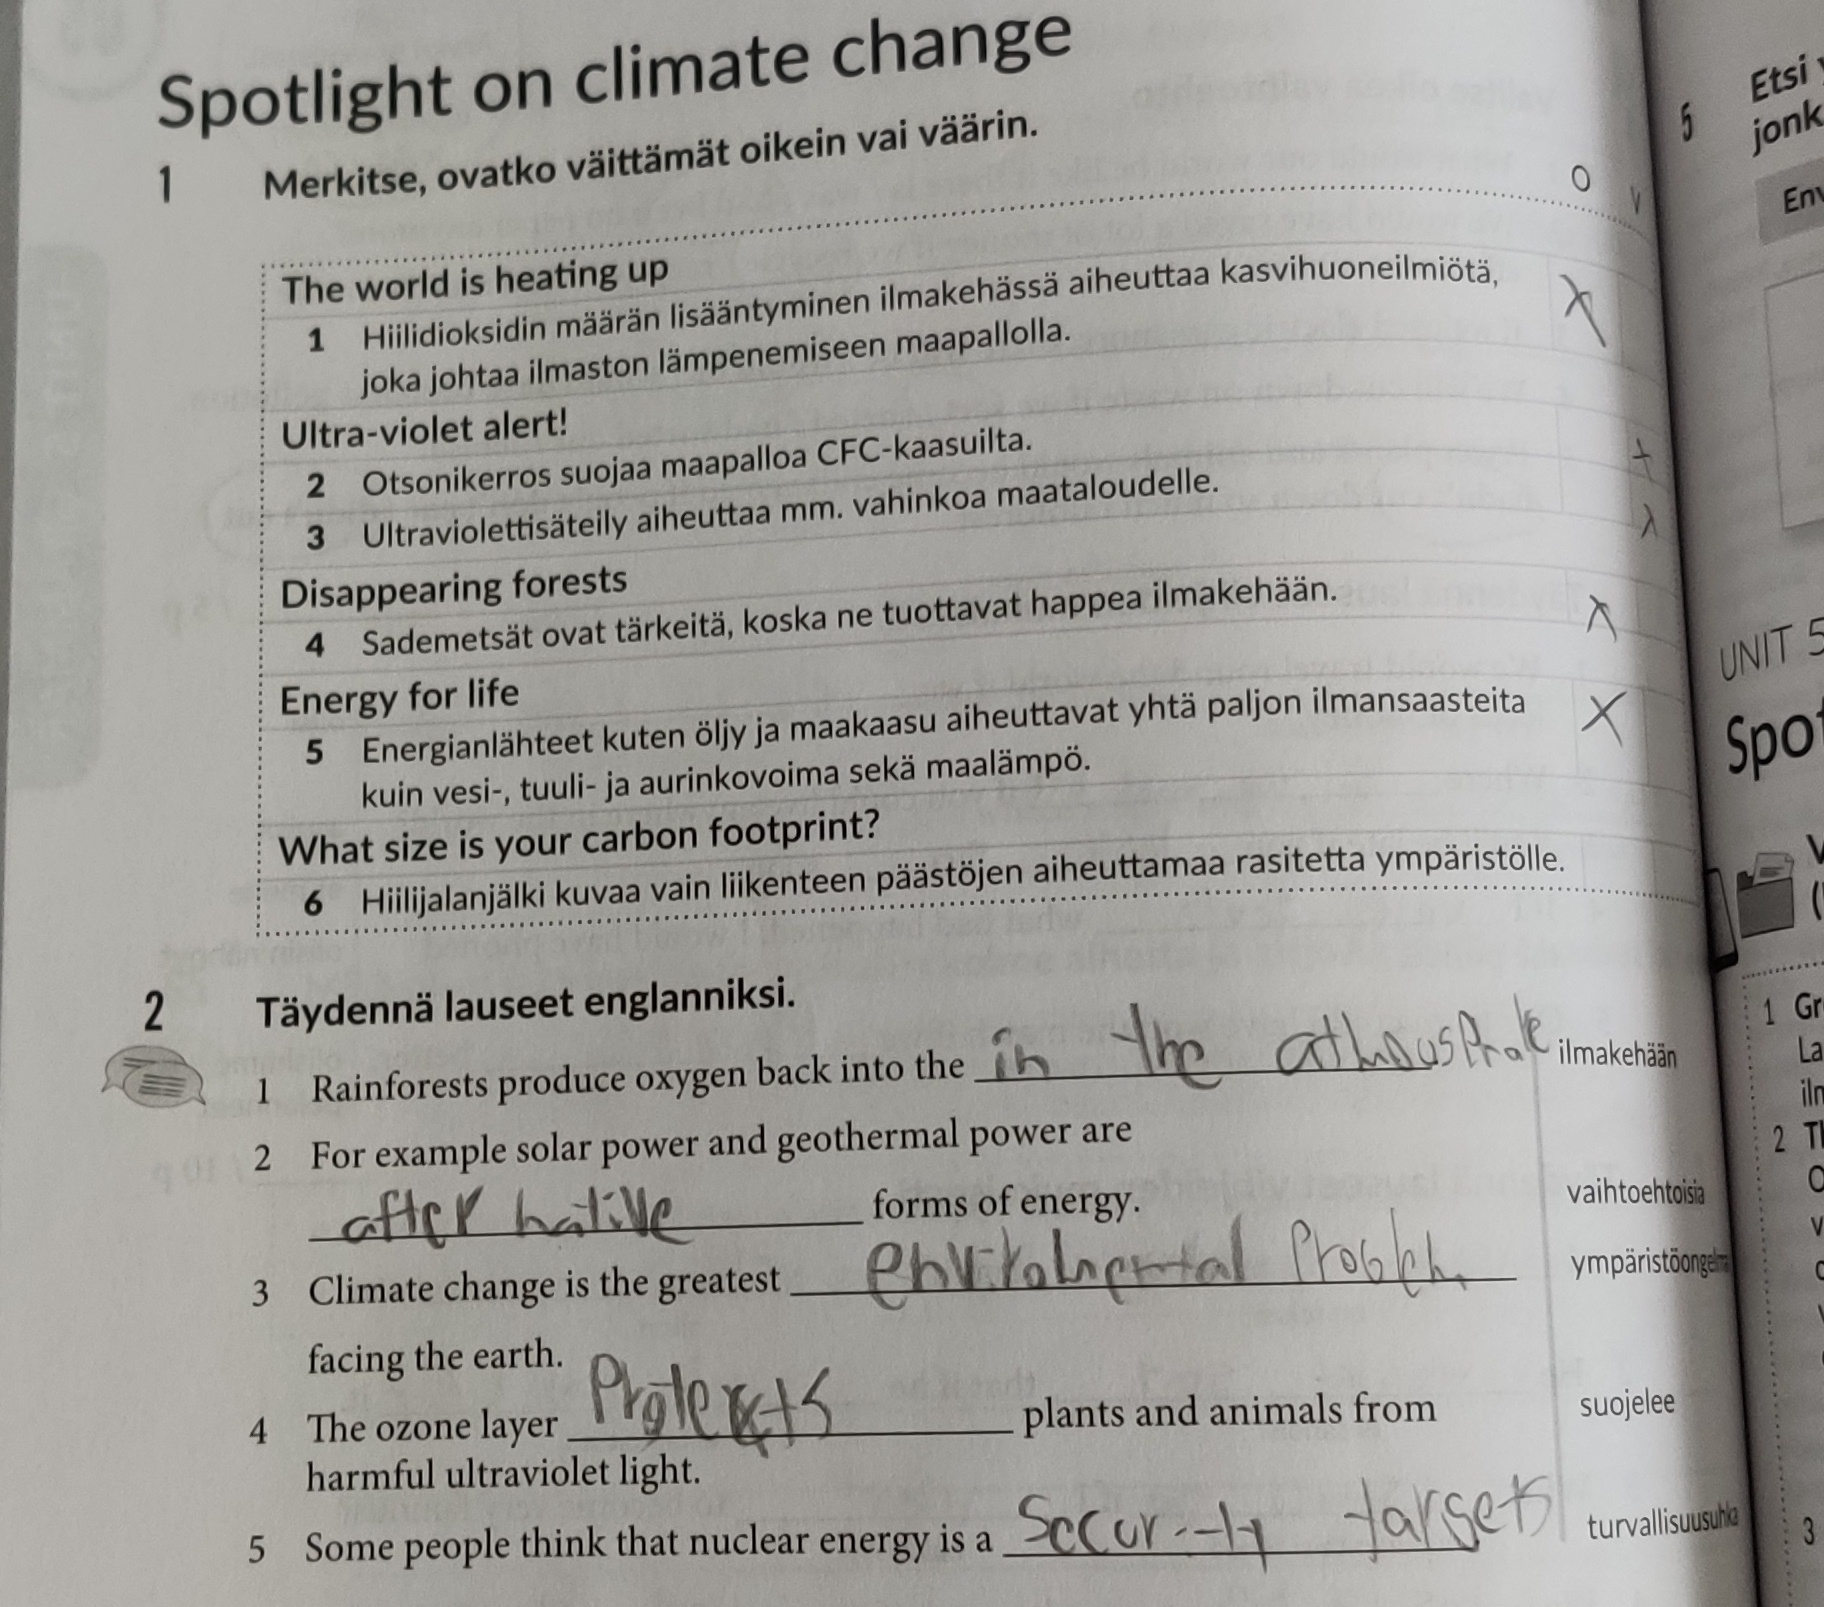 Spotlight on climate change
1 Merkitse, ovatko väittämät oikein vai väärin.
O V
The world is heating up
1 Hiilidioksidin määrän lisääntyminen ilmakehässä aiheuttaa kasvihuoneilmiötä, X
joka johtaa ilmaston lämpenemiseen maapallolla.
Ultra-violet alert!
2 Otsonikerros suojaa maapalloa CFC-kaasuilta. X
3 Ultraviolettisäteily aiheuttaa mm. vahinkoa maataloudelle. X
Disappearing forests
4 Sademetsät ovat tärkeitä, koska ne tuottavat happea ilmakehään. X
Energy for life
5 Energianlähteet kuten öljy ja maakaasu aiheuttavat yhtä paljon ilmansaasteita X
kuin vesi-, tuuli- ja aurinkovoima sekä maalämpö.
What size is your carbon footprint?
6 Hiilijalanjälki kuvaa vain liikenteen päästöjen aiheuttamaa rasitetta ympäristölle.
2 Täydennä lauseet englanniksi.
1 Rainforests produce oxygen back into the in the ilmakehään
2 For example solar power and geothermal power are
forms of energy. vaihtoehtoisia
3 Climate change is the greatest ympäristöongelma
facing the earth.
4 The ozone layer plants and animals from suojelee
harmful ultraviolet light.
5 Some people think that nuclear energy is a targets turvallisuusuhka
5 Etsi
jonk
Env
UNIT 5
Spot
1 Gr
La
iln
2 Tl
3